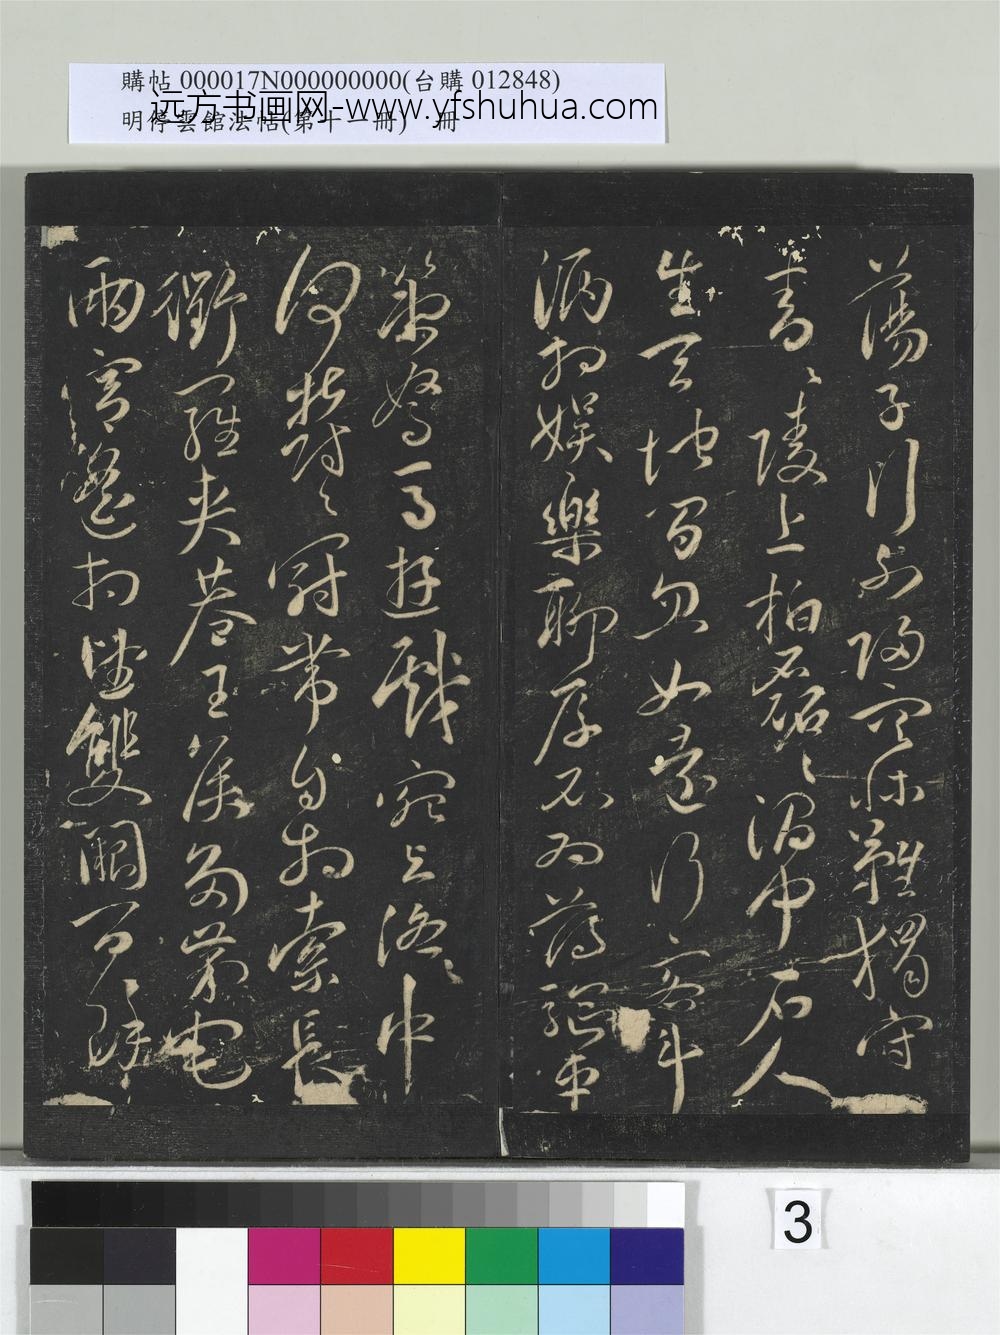 購帖 000017N000000000(台購 012848)
远方书画网-www.yfshuhua.com
明停雲館法帖(第十一冊) 冊
蕩子行不歸空床難獨守
青〻陵上柏磊〻澗中石人
生天地間忽如遠行客斗
酒相娛樂聊厚不為薄驅車
策駑馬遊戲宛與洛〻中
何鬱〻冠帶自相索長
衢羅夾巷王侯多第宅
兩宮遙相望雙闕百餘
3